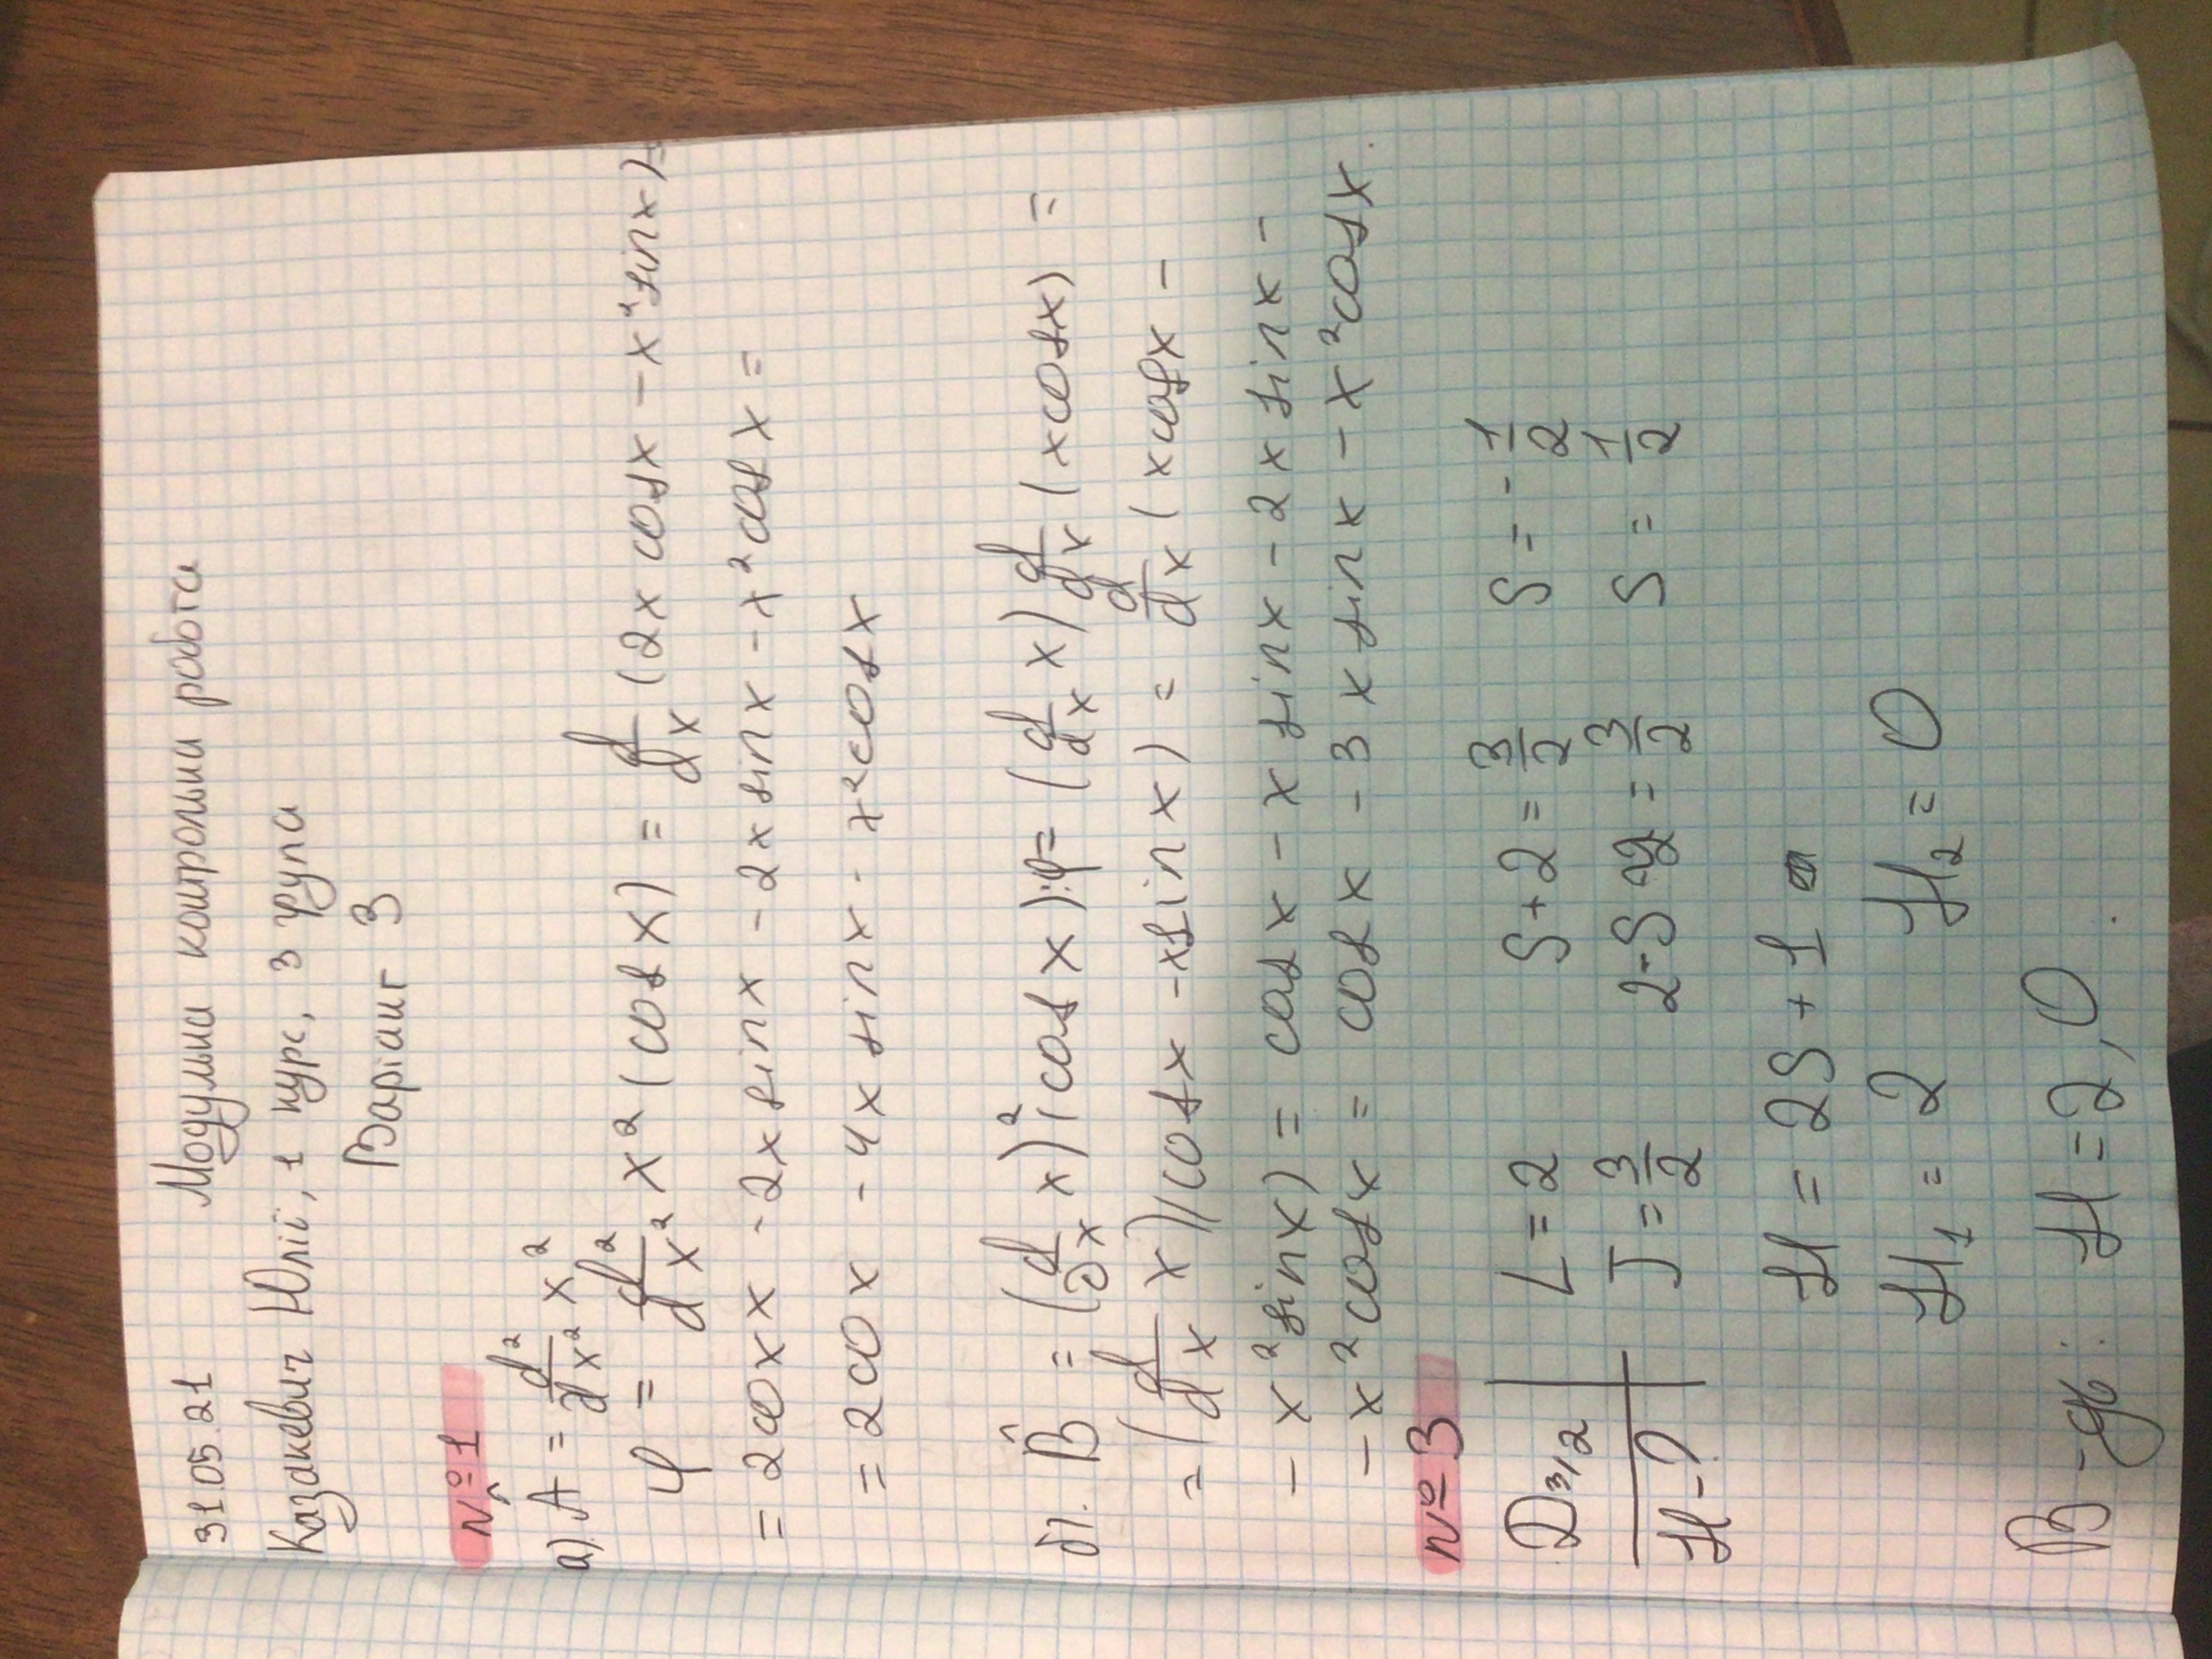 31.05.21 Модульна контрольна робота
Казакевич Юлії, 1 курс, 3 група
Варіант 3
№1
а) Â = d²/dx² x²
φ = d²/dx² x² (cos x) = d/dx (2x cosx - x² sinx) =
= 2coxx - 2x sinx - 2x sinx - x² cosx =
= 2cox - 4x sinx - x² cosx
б). B̂ = (d/dx x)² (cos x): φ = (d/dx x) d/dx (x cosx) =
= (d/dx x)(cosx - x sinx) = d/dx (x cosx -
- x² sinx) = cosx - x sinx - 2x sinx -
- x² cosx = cosx - 3x sinx - x² cosx.
№3
D3/2 L = 2 S + 2 = 3/2 S = -1/2
H - ? J = 3/2 2 - S = 3/2 S = 1/2
H = 2S + 1
H₁ = 2 H₂ = 0
В-дь: H = 2, 0.